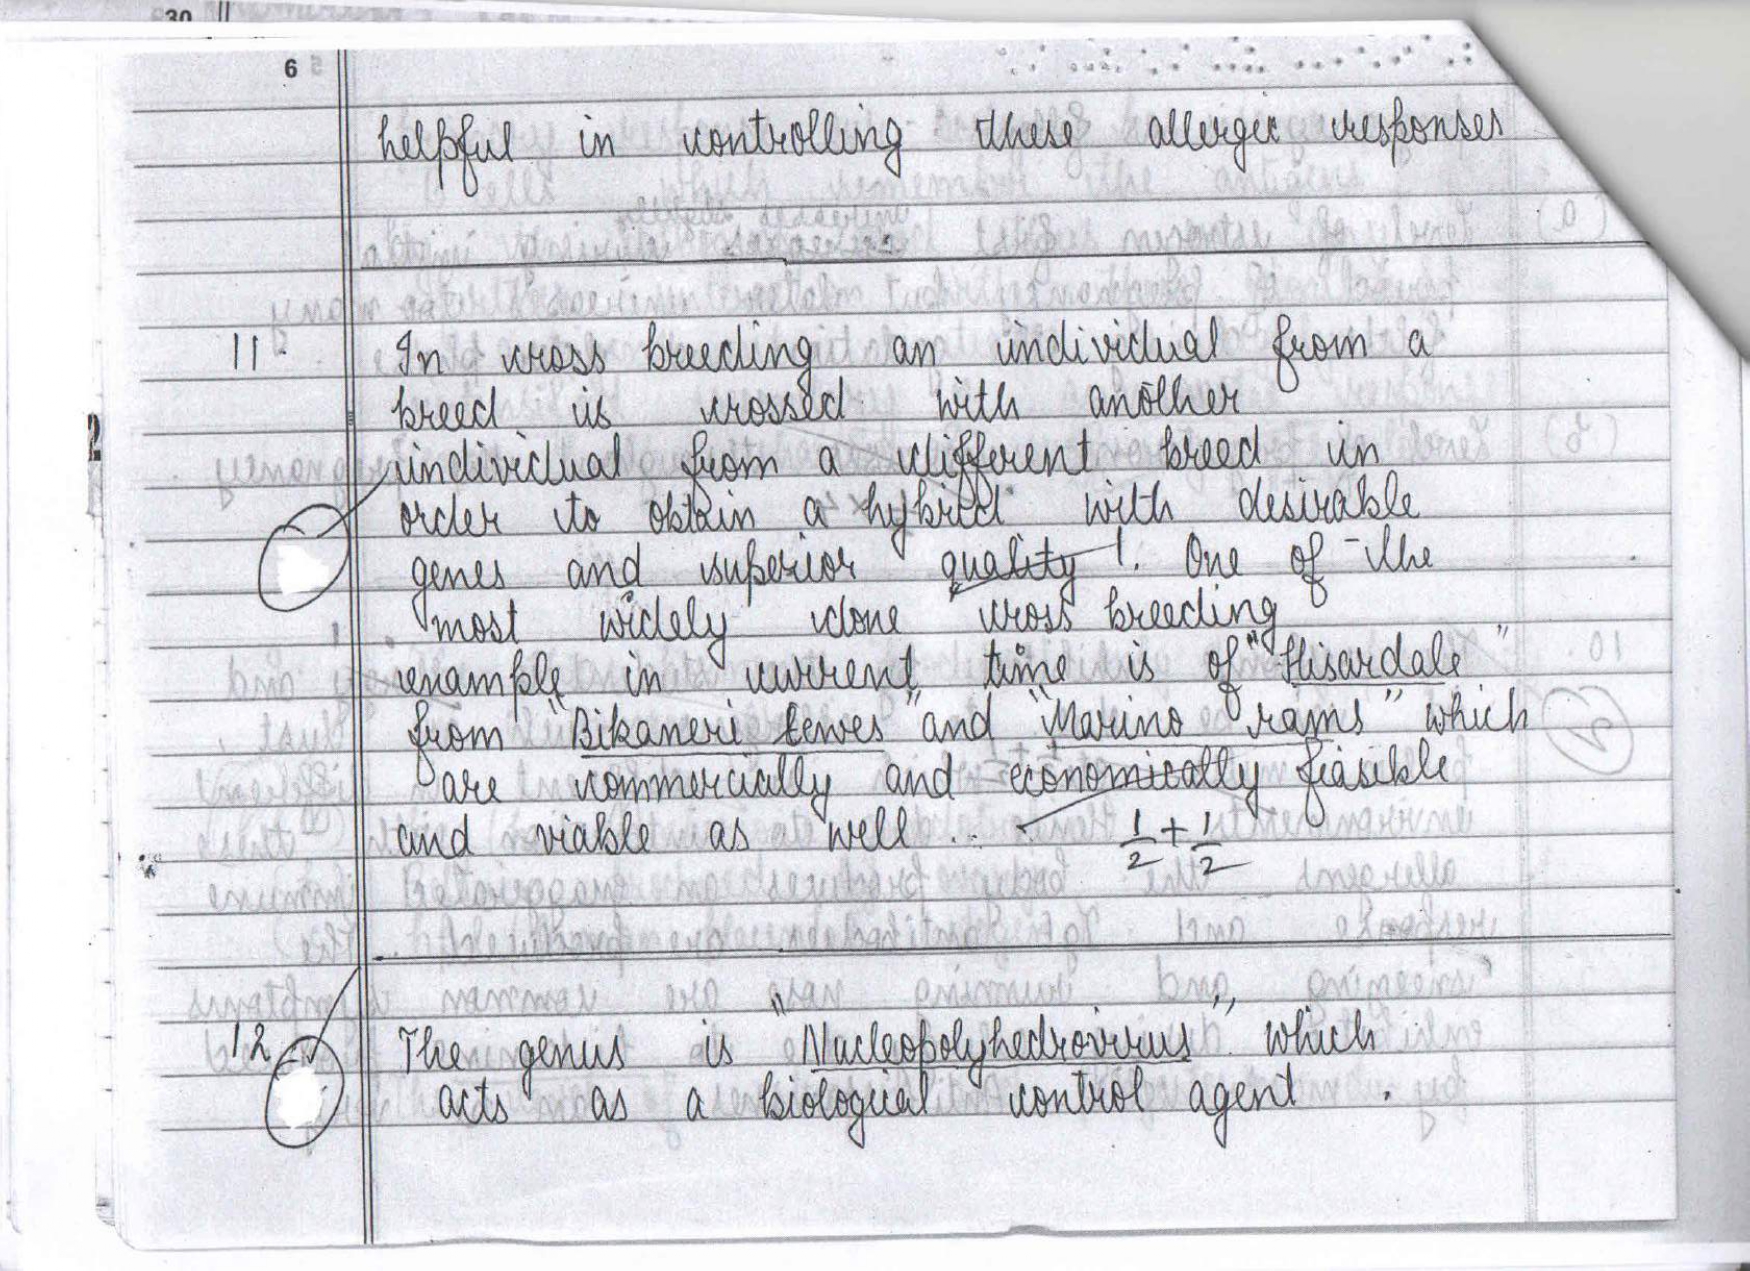 30
6
helpful in controlling these allergic responses
11. In cross breeding an individual from a
breed is crossed with another
individual from a different breed in
order to obtain a hybrid with desirable
genes and superior quality. One of the
most widely done cross breeding
example in current time is of "Hisardale"
from "Bikaneri Eewes" and "Marino rams" which
are commercially and economically feasible
and viable as well.
1/2 + 1/2
12. The genus is "Nucleopolyhedrovirus" which
acts as a biological control agent.